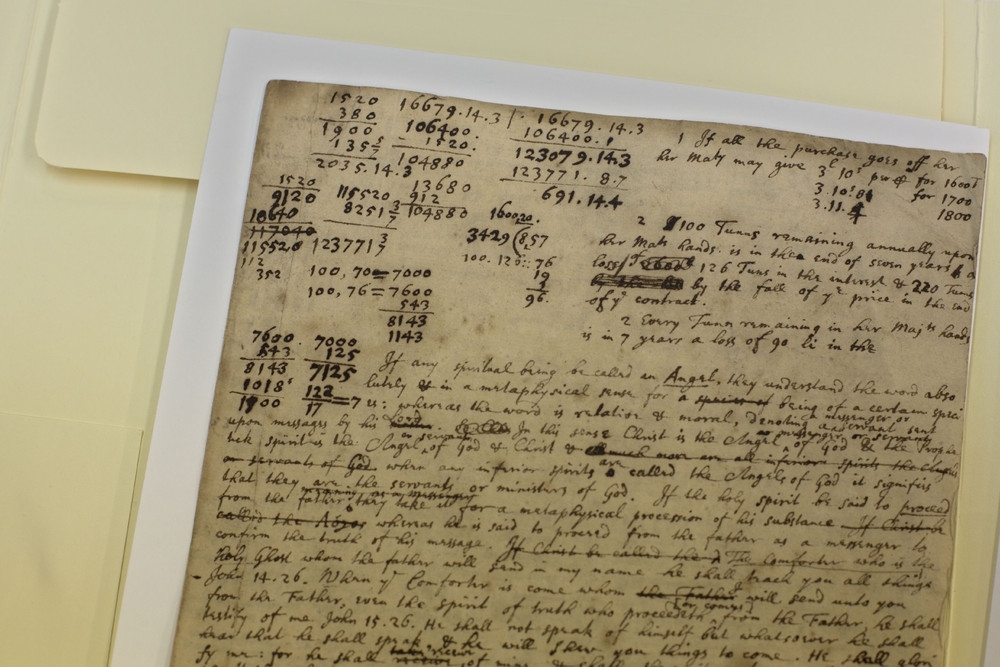 1520
380
1900
135 5/7
2035.14.3
16679.14.3
106400.
1520.
104880
16679.14.3
106400.1
123079.14.3
123771.8.7
691.14.4
1520
9120
10640
117040
115520
112
352
115520
8251 3/7
123771 3/7
13680
912
104880
1600,20.
3429(8,57
100.120::76
19
96.
100,70=7000
100,76=7600
543
8143
1143
7600.
543
8143
1018
1900
7000
125
7125
122
17=7
1 If all the purchase goes off her
her Maty may give 3.10s pr for 1600T
3.10. for 1700
3.11.4 1800
2 100 Tunns remaining annually upon
her Mats hands is in the end of seven years a
loss of 126 Tuns in the interest & 220 Tunns
by the fall of ye price in the end
of ye contract.
2 Every Tunn remaining in her Majts hands
is in 7 years a loss of 90 li in the
If any spiritual being be called an Angel, they understand the word abso
lutely & in a metaphysical sense for a species of being of a certain speci
es: whereas the word is relative & moral, denoting a messenger or servant sent
upon messages by his Lord. In this sense Christ is the Angel or messenger or servant of God & the Prophe
tick spirit is the Angel or servant of God & Christ & much more are all inferior spirits the Angels
or servants of God. when any inferior spirits are called the Angels of God it signifies
that they are the servants or ministers of God. If the holy spirit be said to proceed
from the father, they take it for a metaphysical procession of his substance If Christ be
called the whereas he is said to proceed from the father as a messenger to
confirm the truth of his message. If Christ be called the The Comforter who is the
Holy Ghost whom the father will send in my name he shall teach you all things
John 14.26. When ye Comforter is come whom the Father I will send unto you
from the Father, even the spirit of truth who proceedeth or comes from the Father, he shall
testify of me John 15.26. He shall not speak of himself but whatsoever he shall
hear that he shall speak & he will shew you things to come. He shall glori
fy me: for he shall receive of mine & shall